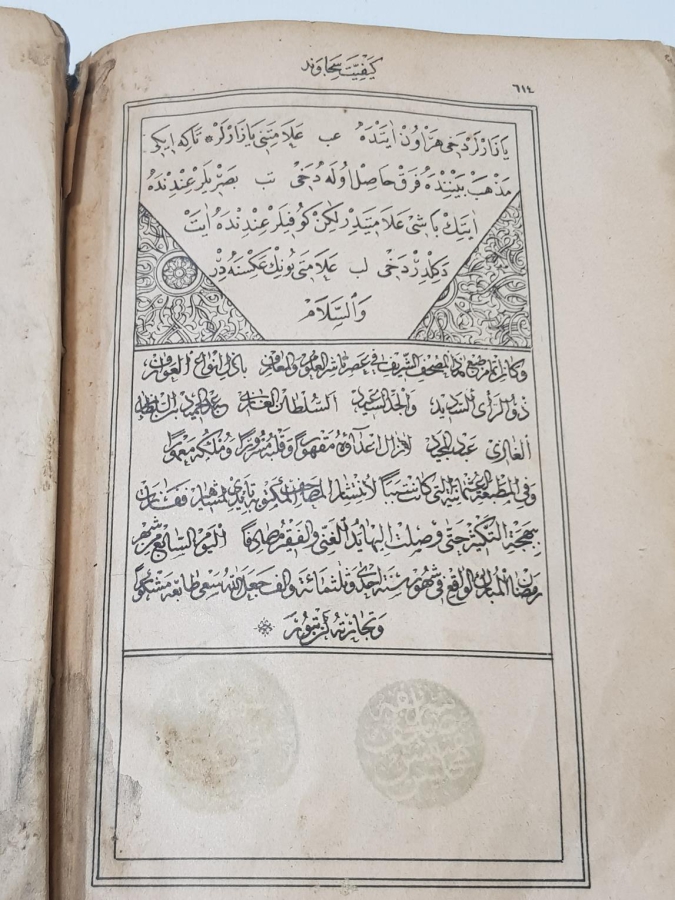 كيفيت سجاوند
٦١٤
يازارلر دخى هر اون ايتده عب علامتنى يازارلر تاكه ايكى
مذهب بيننده فرق حاصل اوله دخى تب بصريلر عندنده
ايتك باشى علامتيدر لكن كوفيلر عندنده ايت
دكلدر دخى لب علامتى بونك عكسنه در
والسلام
وكان تمام المصحف الشريف فى عصر ناشر العلوم والمعارف باذل انواع العوارف
ذو الرأى السديد والجد السعيد السلطان الغازى عبد الحميد بن السلطان
الغازى عبد المجيد لا زال اعداؤه مقهورا وقلبه مسرورا وملكه معمورا
وفى المطبعة العثمانية التى كانت سببا لانتشار المصاحف المكتوبة بايدى
بهجة التكثر حتى وصلت اليها يد الغنى والفقير صادفا اليوم السابع من شهر
رمضان المبارك الواقع فى شهور سنة احدى وثلثمائة والف جعل الله سعى طابعه مشكورا
وتجارته لن تبور